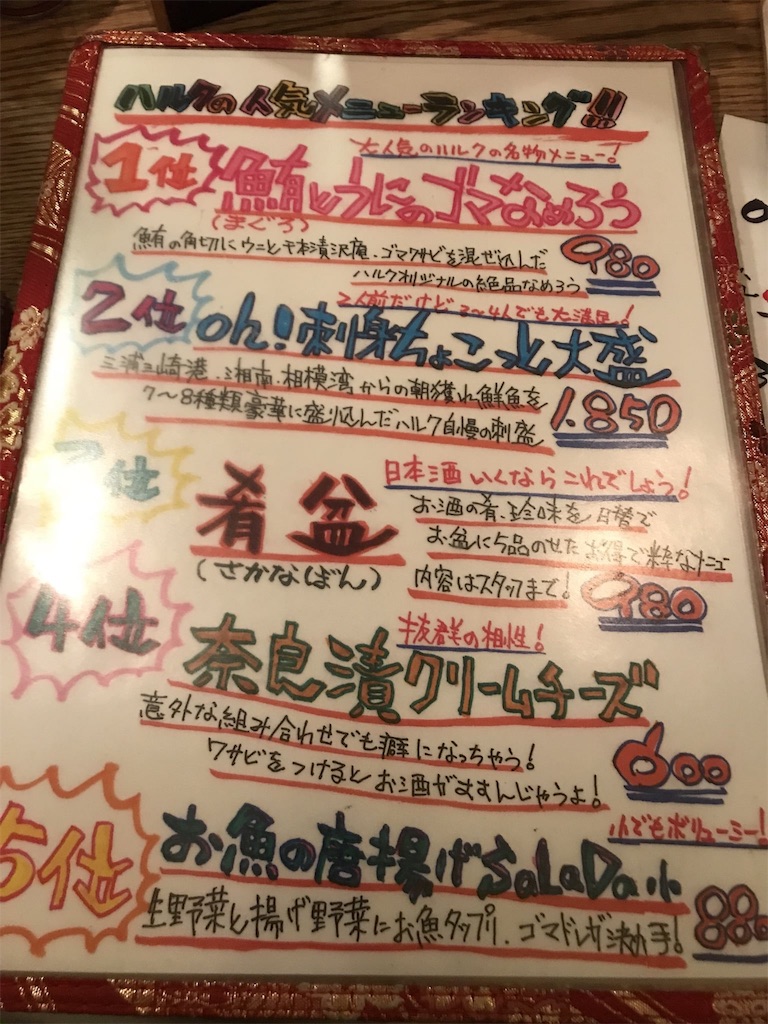 ハルクの人気メニューランキング!!
大人気のハルクの名物メニュー!
1位 鮪とうにのゴマなめろう
(まぐろ)
鮪の角切りにウニと千本漬沢庵、ゴマワサビを混ぜ込んだ
ハルクオリジナルの絶品なめろう
980
2人前だけど2〜4人でも大満足!
2位 oh!刺身ちょこっと大盛
三浦三崎港、湘南、相模湾からの朝獲れ鮮魚を
7〜8種類豪華に盛り込んだハルク自慢の刺盛
1.850
位 肴盆
(さかなばん)
日本酒いくならこれでしょう!
お酒の肴、珍味を日替で
お盆に5品のせたお得で粋なメニュー
内容はスタッフまで!
980
4位
抜群の相性!
奈良漬クリームチーズ
意外な組み合わせでも癖になっちゃう!
ワサビをつけるとお酒がすすんじゃうよ!
600
小でもボリューミー!
5位 お魚の唐揚げSaLaDa小
生野菜と揚げ野菜にお魚タップリ、ゴマドレガ決め手!
880